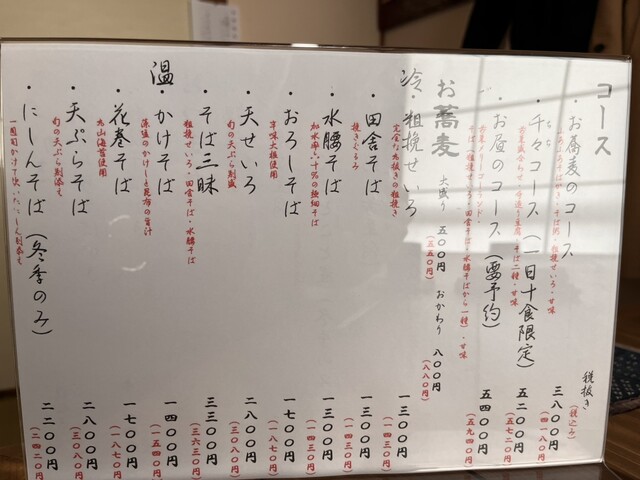 コース
税抜き
(税込み)
・お蕎麦のコース 三八〇〇円
(四一八〇円)
・千々コース(一日十食限定) 五二〇〇円
(五七二〇円)
・お昼のコース(要予約) 五四〇〇円
(五九四〇円)
お蕎麦 大盛り 五〇〇円 おかわり 八〇〇円
(五五〇円) (八八〇円)
冷・粗挽せいろ 一三〇〇円
(一四三〇円)
・田舎そば 一三〇〇円
挽きぐるみ (一四三〇円)
・水腰そば 一三〇〇円
(一四三〇円)
・おろしそば 一七〇〇円
辛味大根使用 (一八七〇円)
・天せいろ 二八〇〇円
旬の天ぷら別盛 (三〇八〇円)
・そば三昧 三三〇〇円
粗挽せいろ・田舎そば・水腰そば (三六三〇円)
温・かけそば 一四〇〇円
(一五四〇円)
・花巻そば 一七〇〇円
(一八七〇円)
・天ぷらそば 二八〇〇円
旬の天ぷら別添え (三〇八〇円)
・にしんそば(冬季のみ) 二二〇〇円
一週間かけて炊いたにしん別添え (二四二〇円)